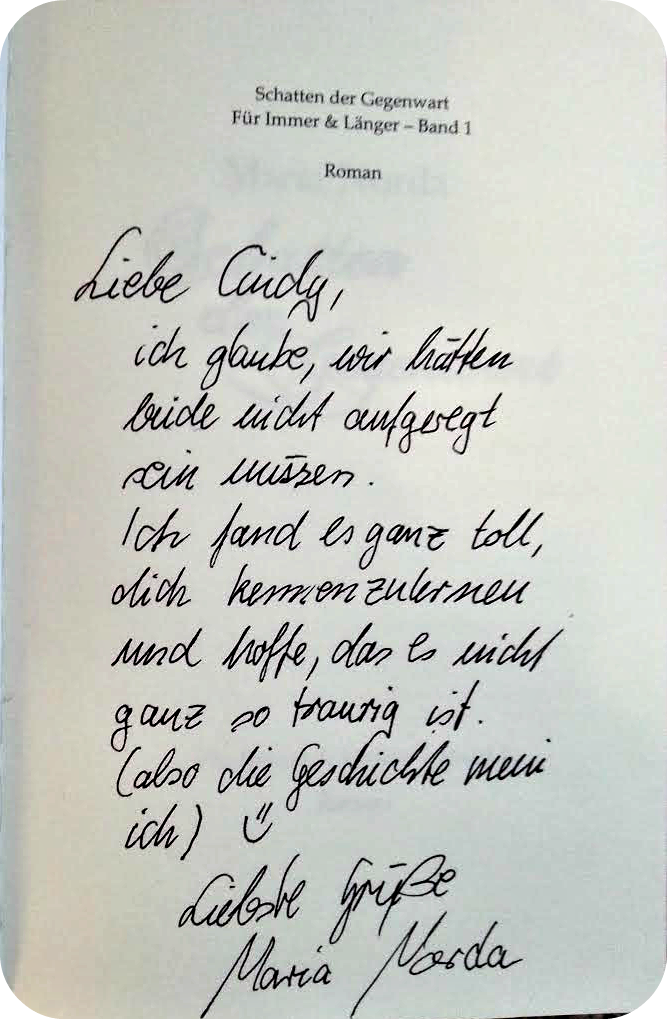 Schatten der Gegenwart
Für Immer & Länger – Band 1
Roman
Liebe Cindy,
ich glaube, wir hätten
beide nicht aufgeregt
sein müssen.
Ich fand es ganz toll,
dich kennenzulernen
und hoffe, das es nicht
ganz so traurig ist.
(also die Geschichte mein
ich) ü
Liebste Grüße
Maria Norda